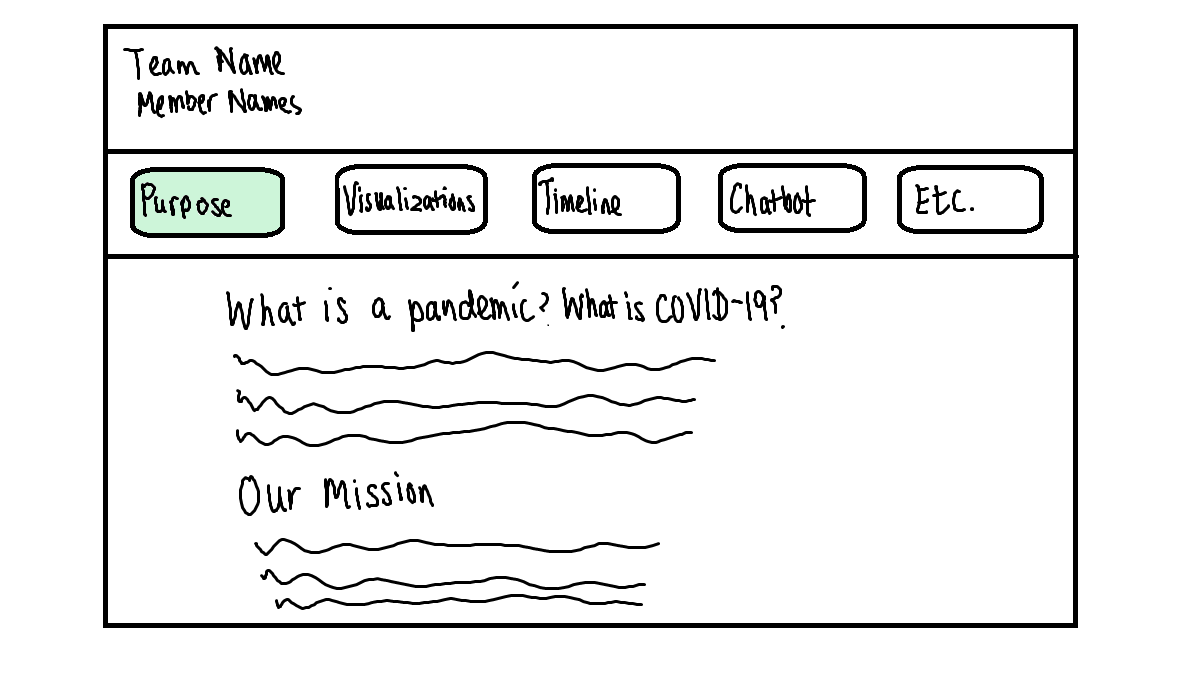 Team Name
Member Names
Purpose
Visualizations
Timeline
Chatbot
Etc.
What is a pandemic? What is COVID-19?
Our Mission